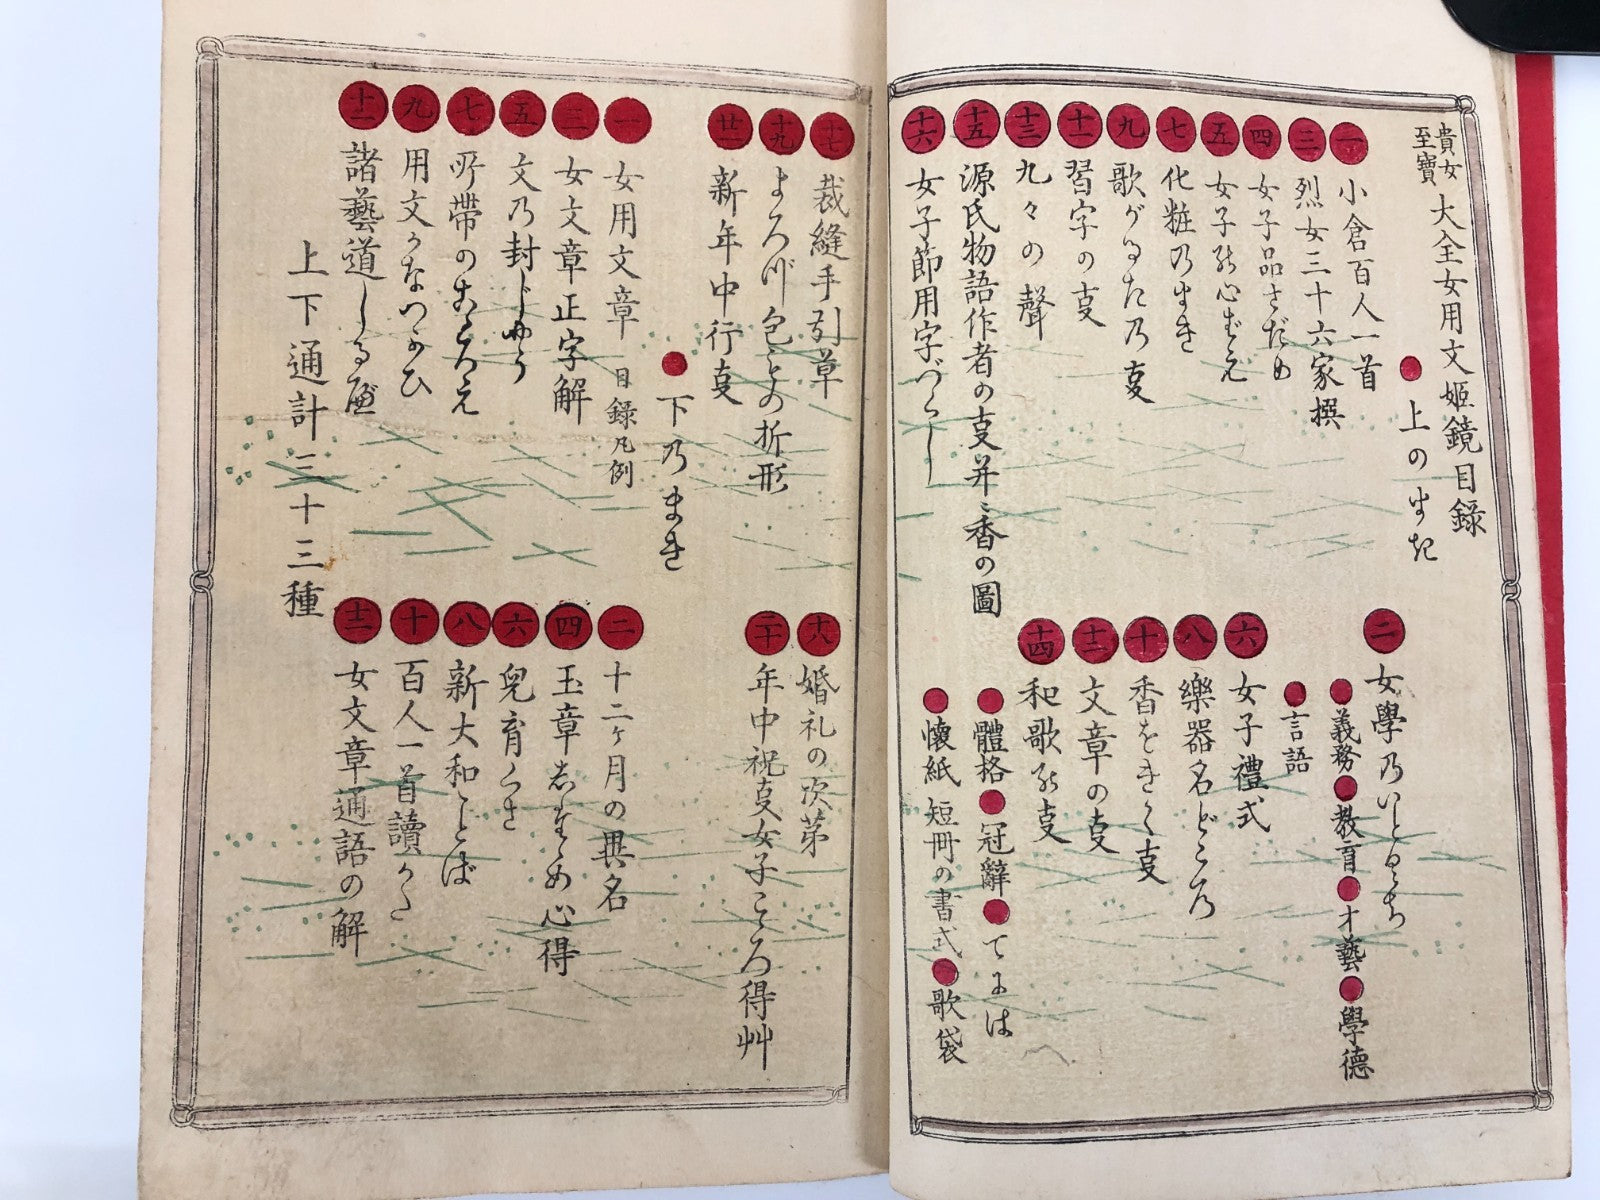 貴女至寶 大全女用文姫鏡目録
●上のまき
一 小倉百人一首
二 女學乃いとぐち
●義務●教育●才藝●學徳
●言語
三 烈女三十六家撰
四 女子品さだめ
五 女子の心ばえ
六 女子禮式
七 化粧乃まき
八 樂器名どころ
九 歌がるた乃叓
十 香をきく叓
十一 習字の叓
十二 文章の叓
十三 九々の聲
十四 和歌の叓
●體格●冠辭●てには
●懐紙短冊の書式●歌袋
十五 源氏物語作者の叓并ニ香の圖
十六 女子節用字づくし
十七 裁縫手引草
十八 婚礼の次第
十九 よろづ包もの折形
二十 年中祝叓女子こゝろ得艸
廿一 新年中行叓
●下乃まき
一 女用文章 目録凡例
二 十二ヶ月の異名
三 女文章正字解
四 玉章したゝめ心得
五 文乃封じやう
六 兒育くさ
七 所帯のこゝろえ
八 新大和ことば
九 用文かなづかひ
十 百人一首讀かた
十一 諸藝道しるべ
十二 女文章通語の解
上下通計三十三種